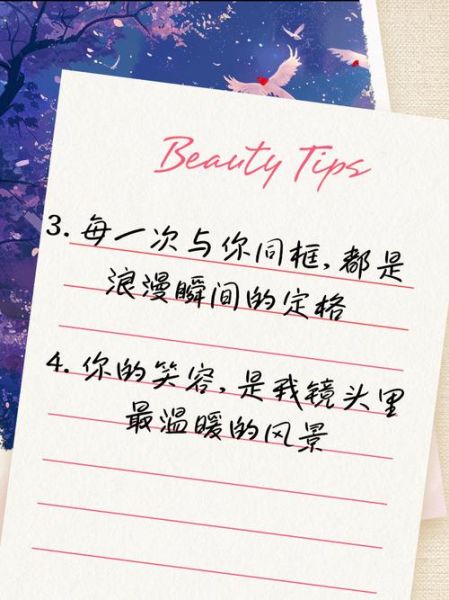 Beauty Tips
3. 每一次与你同框，都是
浪漫瞬间的定格
4. 你的笑容，是我镜头里
最温暖的风景